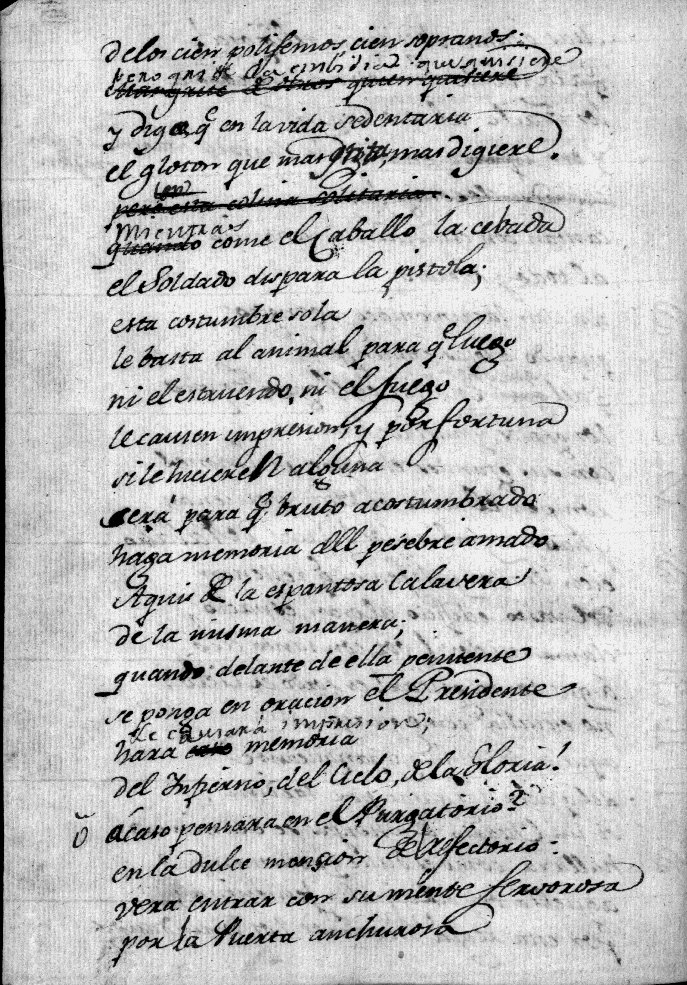 de los cien polifemos, cien sopranos:
pero quite la embidia que quisiere
y diga q.e en la vida sedentaria
el gloton que mas grita, mas digiere.
pero esta colina solitaria
mientras
quando come el Caballo la cebada
el Soldado dispara la pistola;
esta costumbre sola
le basta al animal para q.e luego
ni el estruendo, ni el fuego
le causen impresion, y por fortuna
si le hicieren alguna
será para q.e bruto acostumbrado
haga memoria dell pesebre amado
Aqui de la espantosa Calavera!
de la misma manera;
quando delante de ella penitente
se ponga en oracion el Presidente
le causará impresiones;
hara memoria
del Infierno, del Cielo, de la Gloria!
ó acaso pensara en el Purgatorio?
en la dulce mansion de Refectorio:
vera entrar con su mente fervorosa
por la Puerta anchurosa